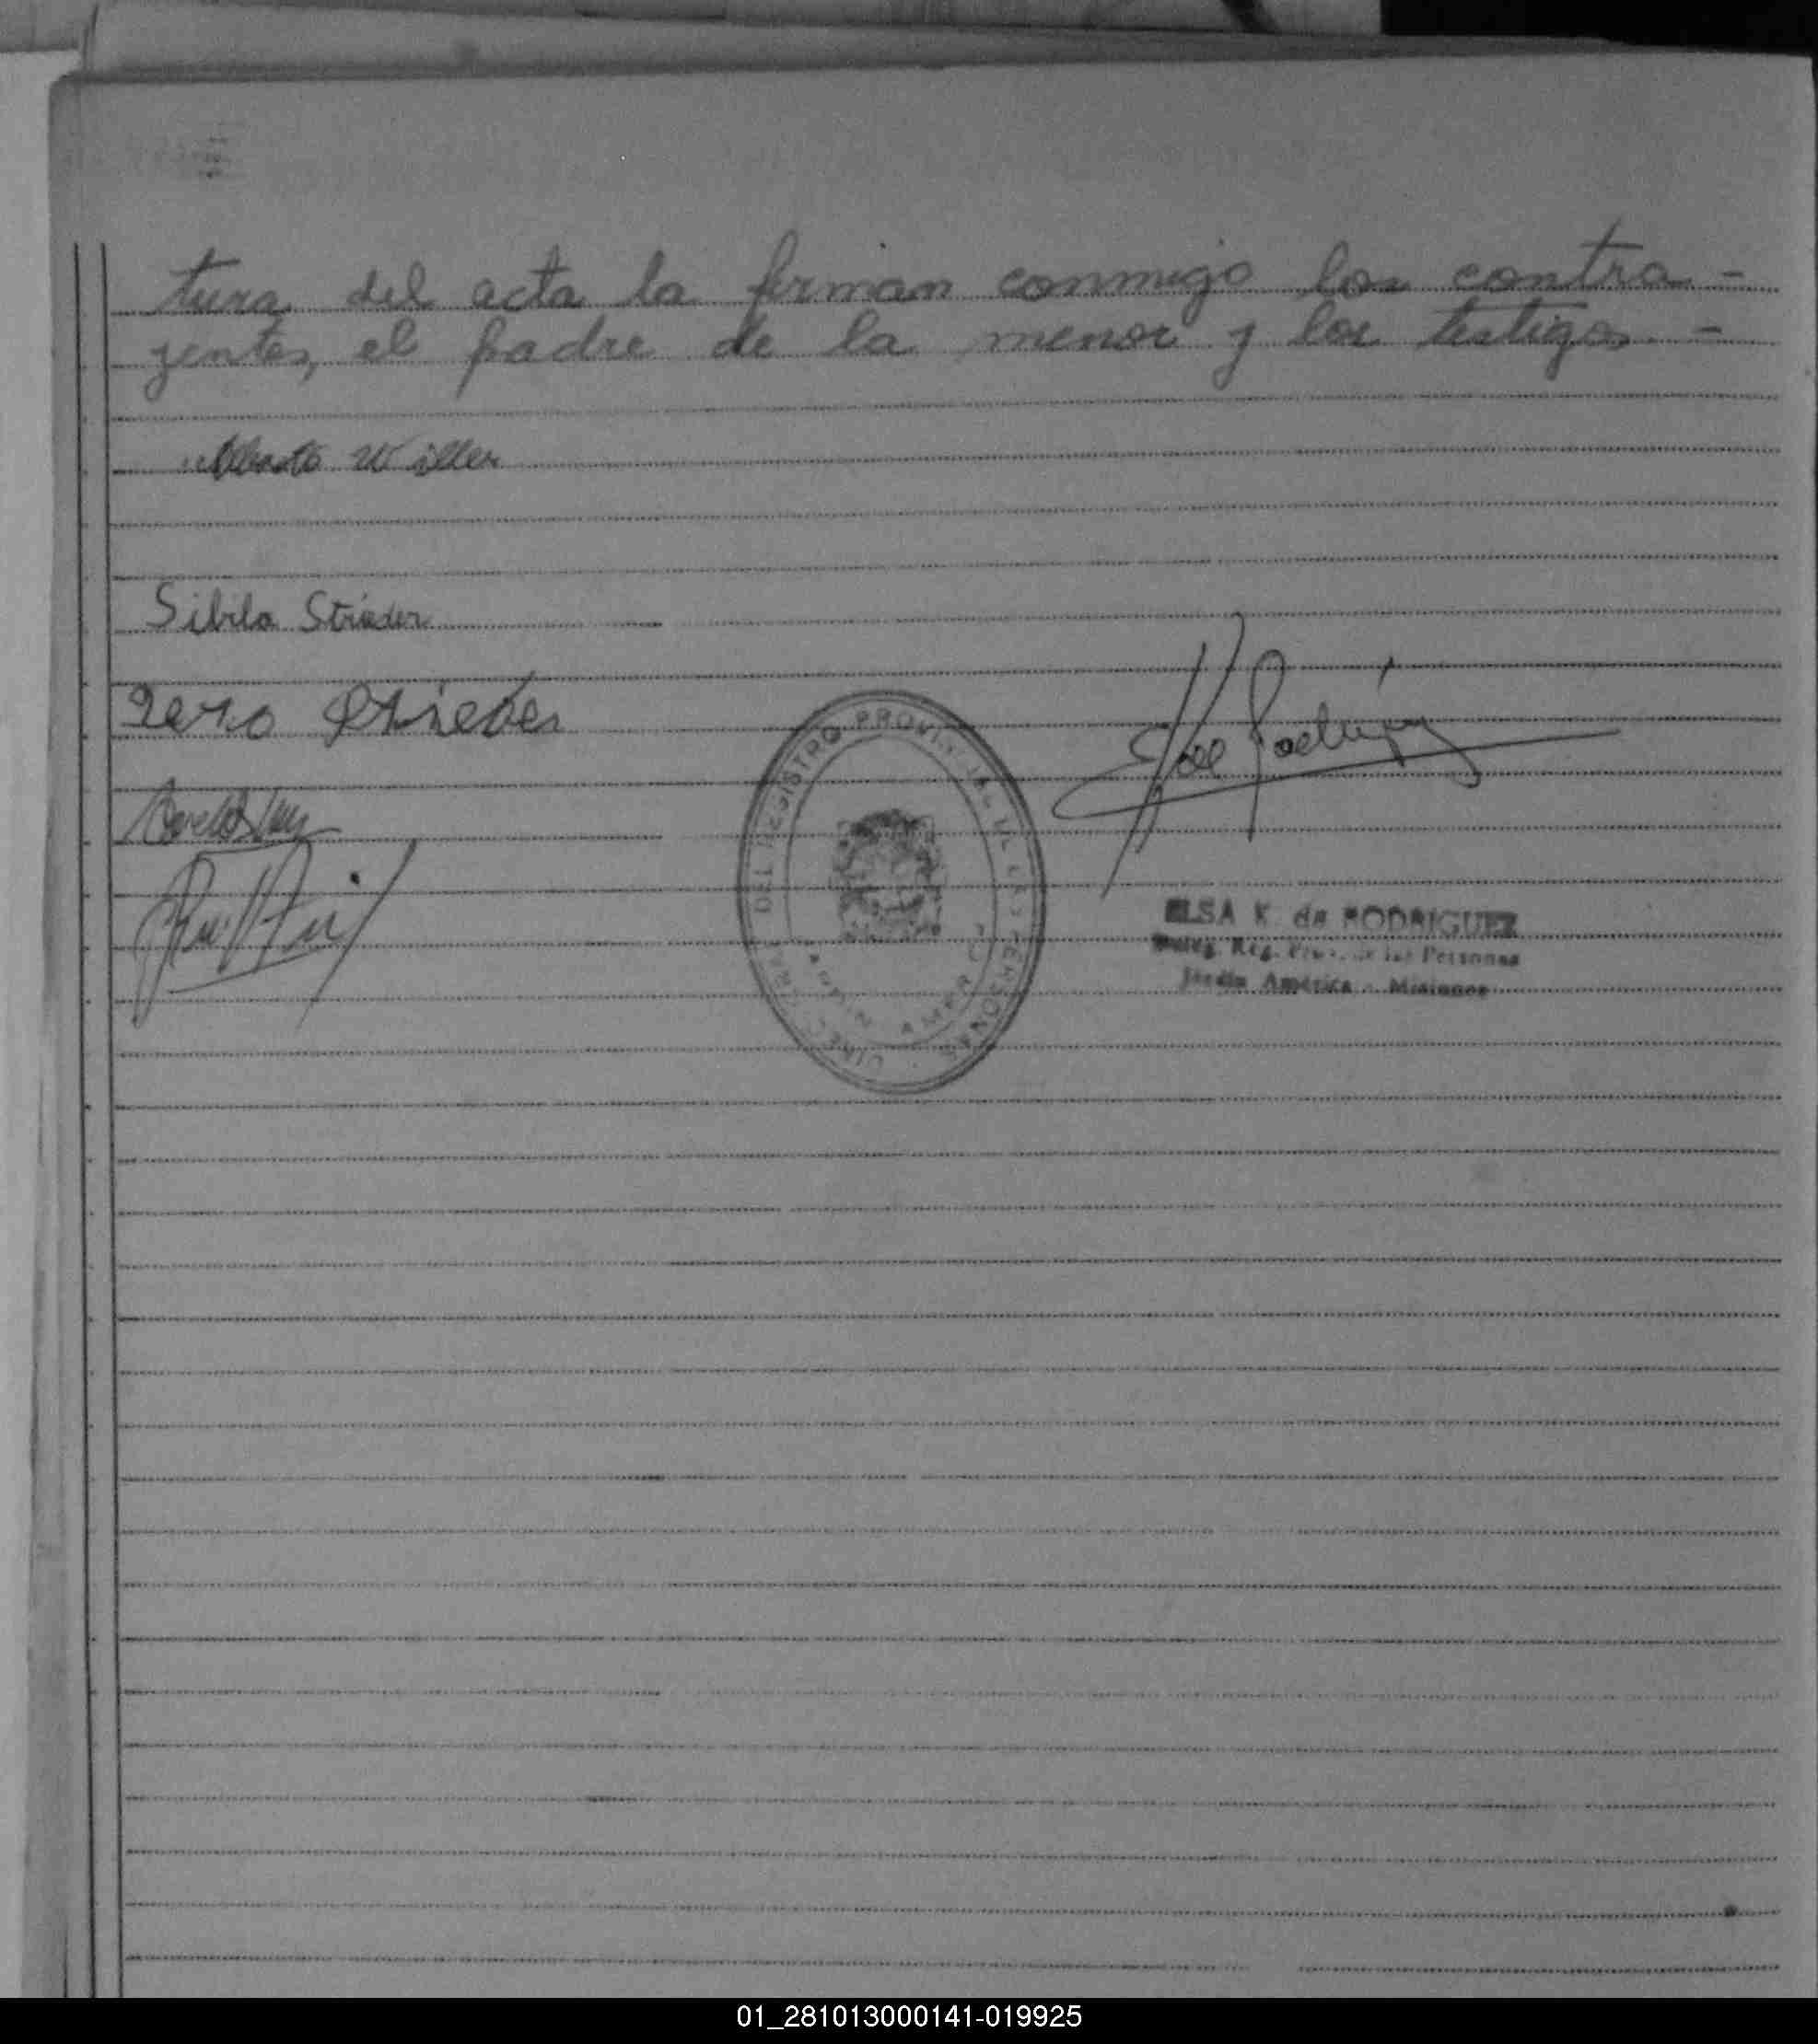 tura del acta la firman conmigo los contra-
jentes, el padre de la menor y los testigos.-
Alberto Willer
Sibila Strieder
Strieder
DEL REGISTRO PROVINCIAL DE LAS PERSONAS
JARDIN AMERICA
ELSA K. de RODRIGUEZ
Deleg. Reg. Prov. de las Personas
Jardín América - Misiones
01_281013000141-019925